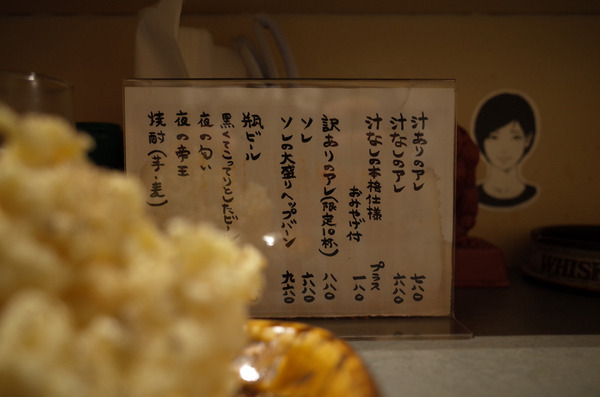 汁ありのアレ 七八〇
汁なしのアレ 六八〇
汁なしの本格仕様 プラス 一八〇
おみやげ付
訳ありのアレ(限定10杯) 八八〇
ソレ 六八〇
ソレの大盛りヘップバーン 九六〇
瓶ビール
黒くてこってりとしたビ
夜の匂い
夜の帝王
焼酎(芋・麦)
WHISK